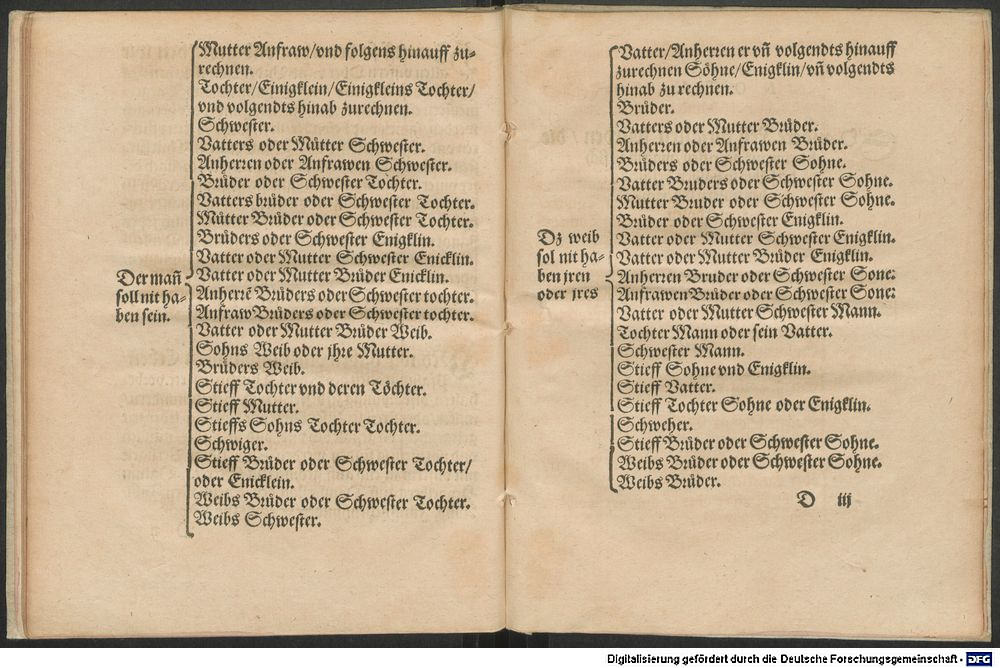 Mutter Anfraw/vnd folgens hinauff zu-
rechnen.
Tochter/Einigklein/Einigkleins Tochter/
vnd volgendts hinab zurechnen.
Schwester.
Vatters oder Můtter Schwester.
Anherren oder Anfrawen Schwester.
Brůder oder Schwester Tochter.
Vatters brůder oder Schwester Tochter.
Můtter Brůder oder Schwester Tochter.
Brůders oder Schwester Enigklin.
Vatter oder Mutter Schwester Enicklin.
Vatter oder Mutter Brůder Enicklin.
Anherrē Brůders oder Schwester tochter.
Anfraw Brůders oder Schwester tochter.
Vatter oder Mutter Brůder Weib.
Sohns Weib oder jhre Mutter.
Brůders Weib.
Stieff Tochter vnd deren Töchter.
Stieff Mutter.
Stieffs Sohns Tochter Tochter.
Schwiger.
Stieff Brůder oder Schwester Tochter/
oder Enicklein.
Weibs Brůder oder Schwester Tochter.
Weibs Schwester.
Der mañ
soll nit ha-
ben sein.
Vatter/Anherren er vñ volgendts hinauff
zurechnen Söhne/Enigklin/vñ volgendts
hinab zu rechnen.
Brůder.
Vatters oder Mutter Brůder.
Anherren oder Anfrawen Brůder.
Brůders oder Schwester Sohne.
Vatter Bruders oder Schwester Sohne.
Mutter Bruder oder Schwester Sohne.
Brůder oder Schwester Enigklin.
Vatter oder Mutter Schwester Enigklin.
Vatter oder Mutter Brůder Enigklin.
Anherren Bruder oder Schwester Sone:
Anfrawen Brůder oder Schwester Sone:
Vatter oder Mutter Schwester Mann.
Tochter Mann oder sein Vatter.
Schwester Mann.
Stieff Sohne vnd Enigklin.
Stieff Vatter.
Stieff Tochter Sohne oder Enigklin.
Schweher.
Stieff Brůder oder Schwester Sohne.
Weibs Brůder oder Schwester Sohne.
Weibs Brůder.
Dz weib
sol nit ha-
ben jren
oder jres
D iij
Digitalisierung gefördert durch die Deutsche Forschungsgemeinschaft - DFG